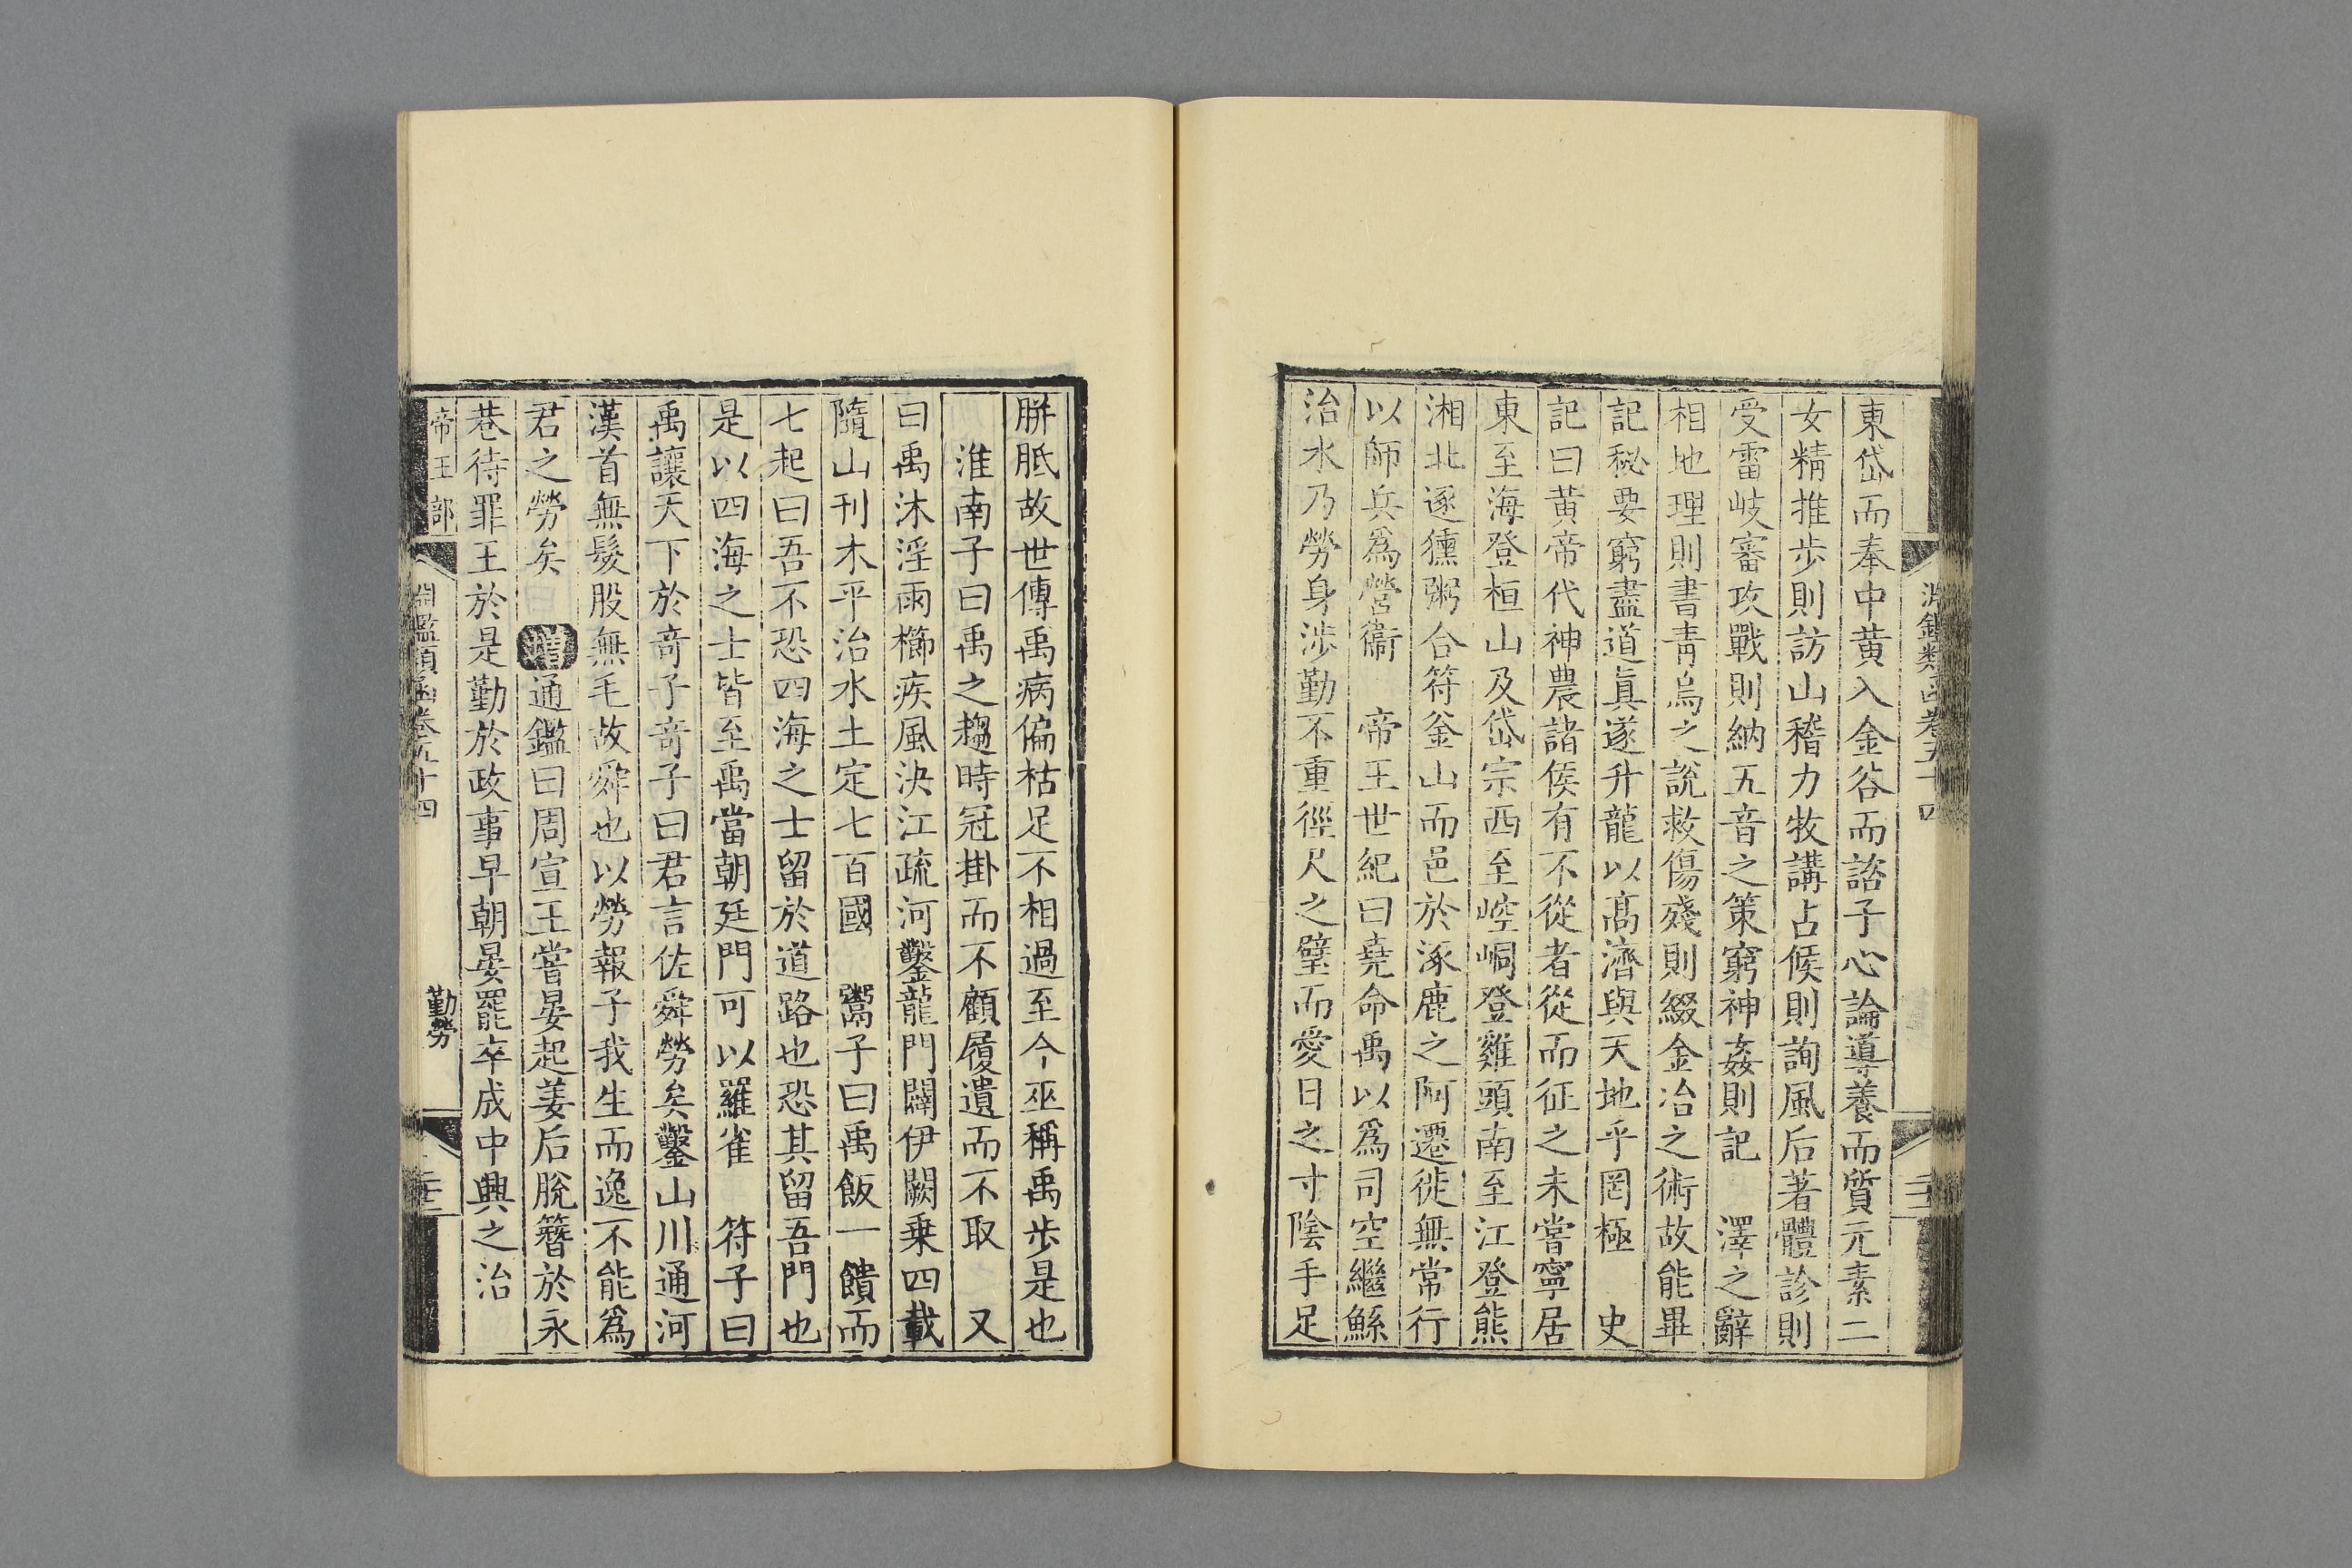 東岱而奉中黄入金谷而諮子心論導養而質元素二
女精推步則訪山稽力牧講占候則詢風后著體診則
受雷岐審攻戰則納五音之策窮神姦則記　澤之辭
相地理則書青烏之說救傷殘則綴金冶之術故能畢
記秘要窮盡道眞遂升龍以髙濟與天地乎罔極　史
記曰黄帝代神農諸侯有不從者從而征之未嘗寧居
東至海登桓山及岱宗西至崆峒登雞頭南至江登熊
湘北逐獯粥合符釜山而邑於涿鹿之阿遷徙無常行
以師兵爲營衞　帝王世紀曰堯命禹以爲司空繼鯀
治水乃勞身涉勤不重徑尺之璧而愛日之寸陰手足
胼胝故世傳禹病偏枯足不相過至今巫稱禹步是也
淮南子曰禹之趨時冠掛而不顧履遺而不取　又
曰禹沐淫雨櫛疾風決江疏河鑿龍門闢伊闕乗四載
隨山刊木平治水土定七百國　鬻子曰禹飯一饋而
七起曰吾不恐四海之士留於道路也恐其留吾門也
是以四海之士皆至禹當朝廷門可以羅雀　符子曰
禹讓天下於奇子奇子曰君言佐舜勞矣鑿山川通河
漢首無髮股無毛故舜也以勞報子我生而逸不能爲
君之勞矣　增通鑑曰周宣王嘗晏起姜后脫簪於永
巷待罪王於是勤於政事早朝晏罷卒成中興之治
帝王部
淵鑑類函卷五十四
勤勞